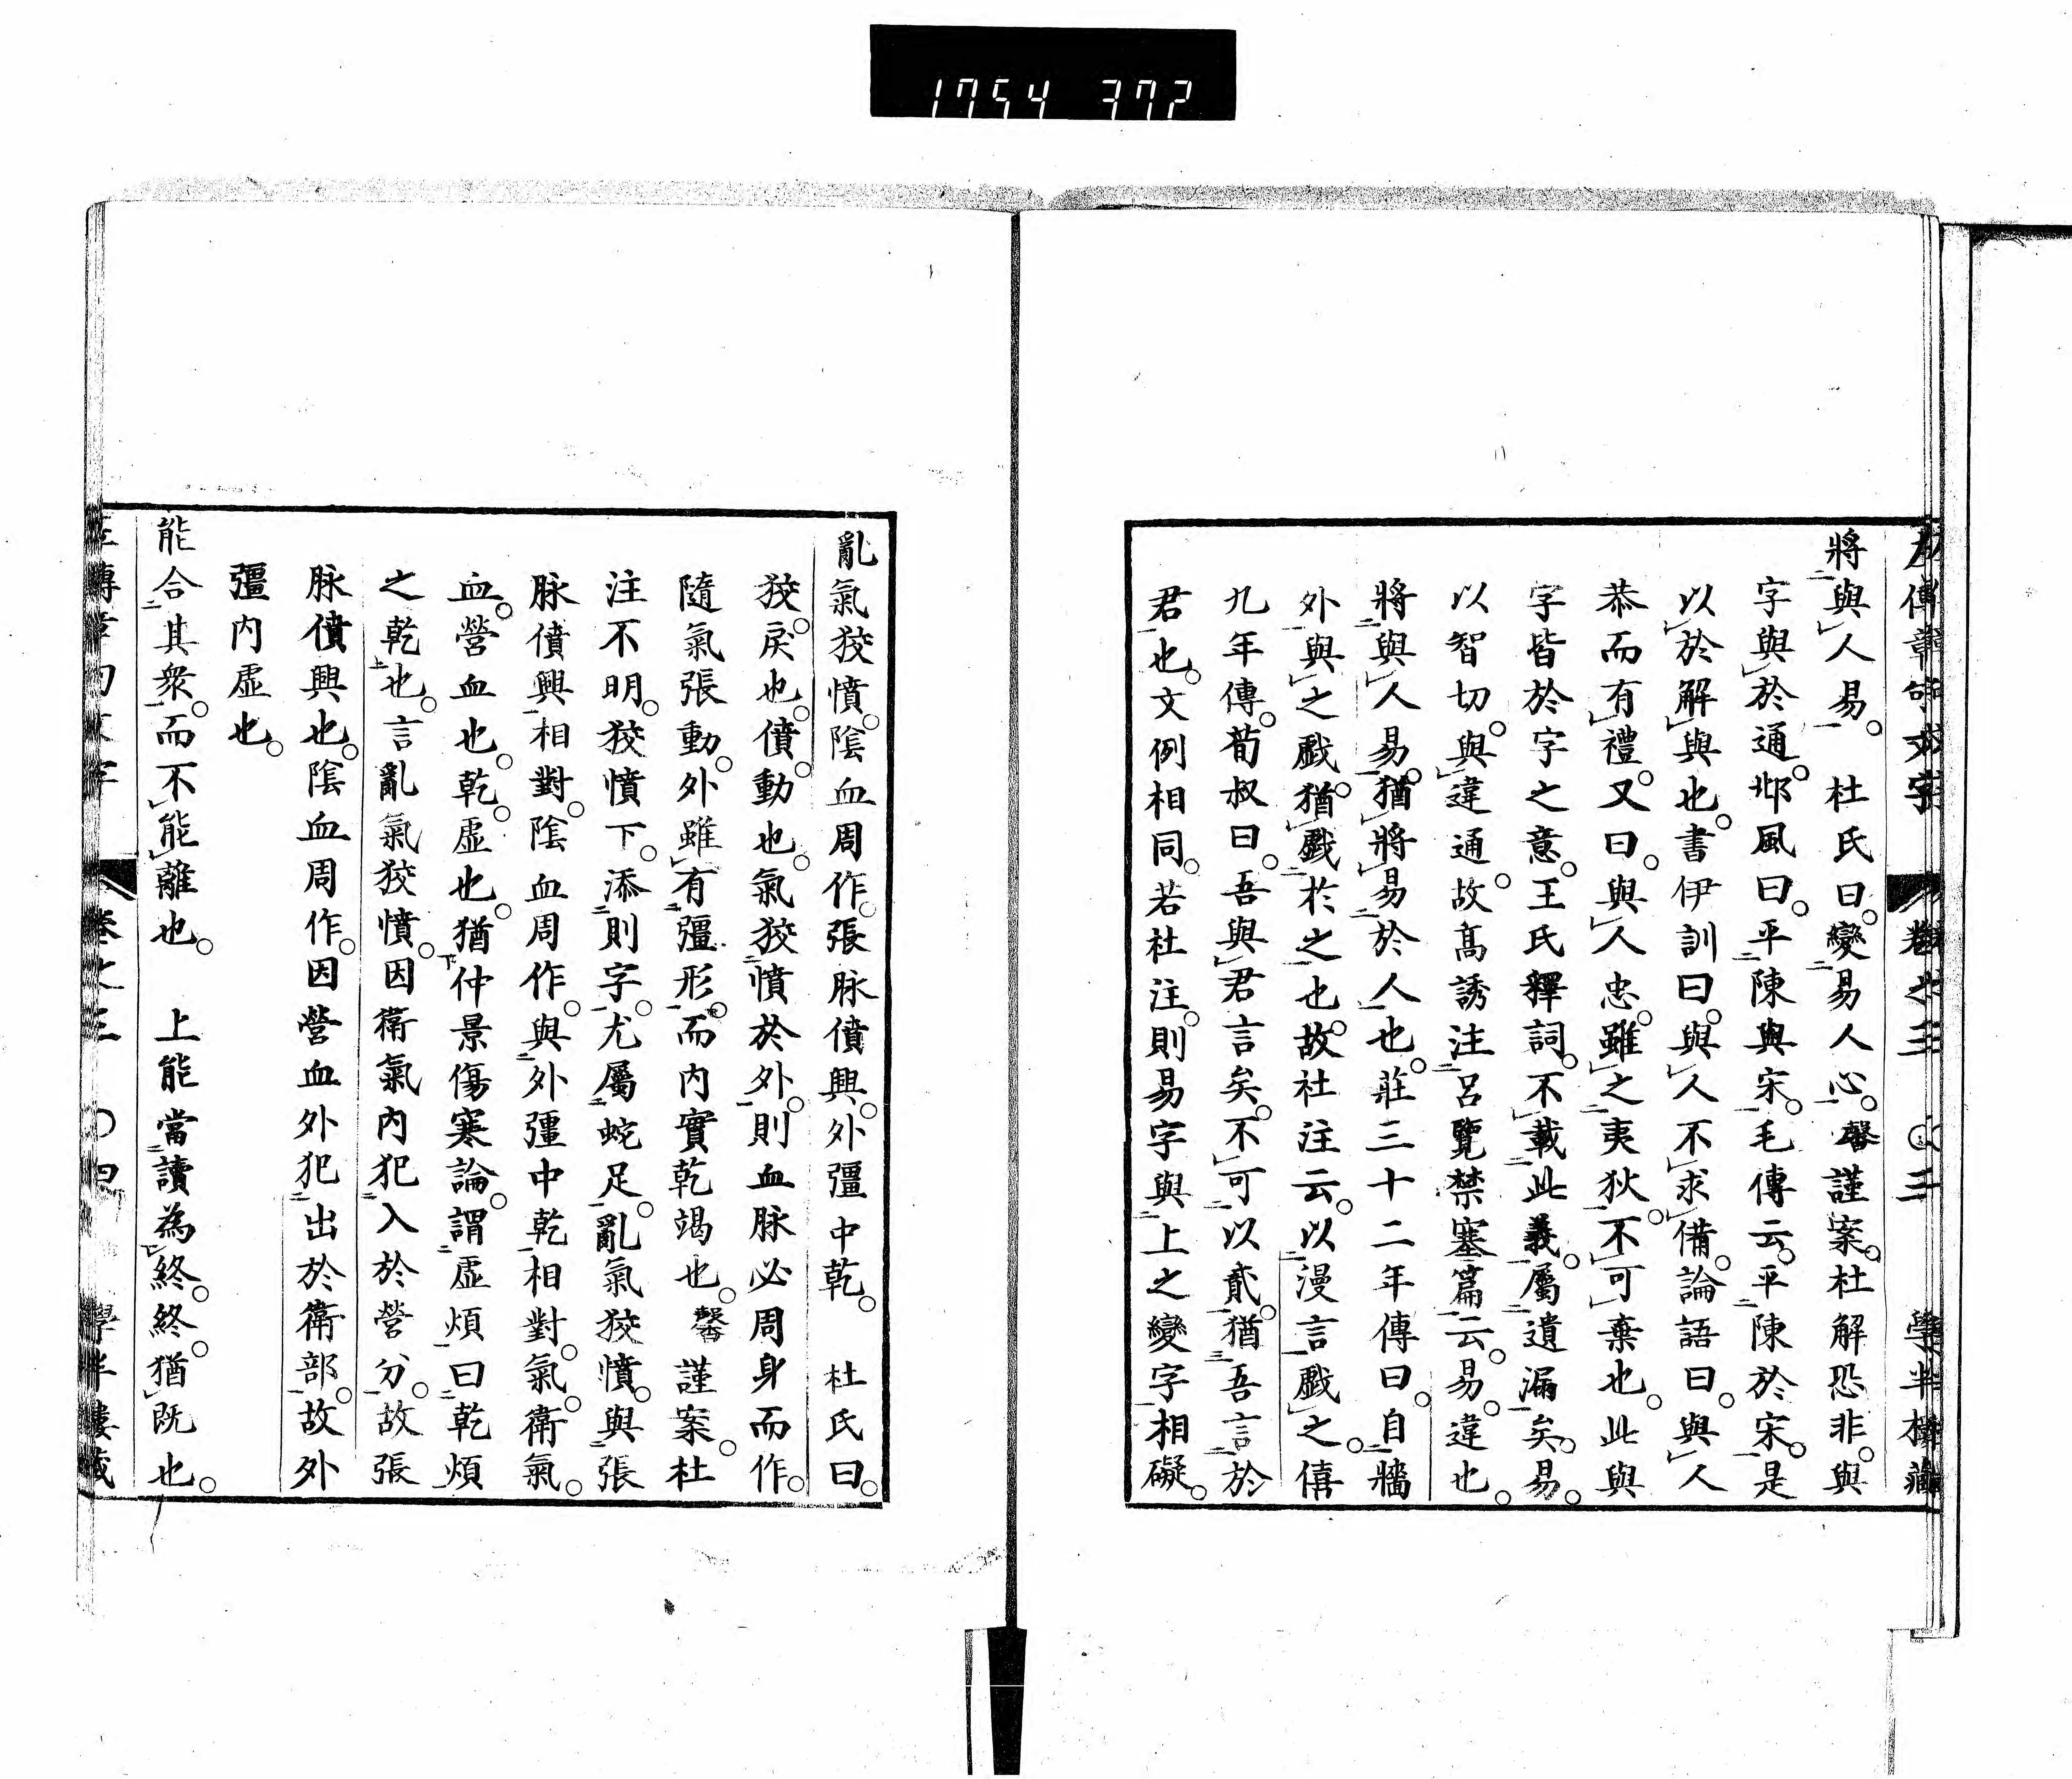 1754 372
左傳章句文字 卷之三 〇三 學半樓藏
將與人易。 杜氏曰。變易人心。馨謹案。杜解恐非。與
字與於通。邶風曰。平陳與宋。毛傳云。平陳於宋。是
以於解與也。書伊訓曰。與人不求備。論語曰。與人
恭而有禮。又曰。與人忠。雖之夷狄。不可棄也。此與
字皆於字之意。王氏釋詞。不載此義。屬遺漏矣。易。
以智切。與違通。故高誘注呂覽禁塞篇云。易。違也。
將與人易。猶將易於人也。莊三十二年傳曰。自牆
外與之戲。猶戲於之也。故杜注云。以漫言戲之。僖
九年傳。荀叔曰。吾與君言矣。不可以貳。猶吾言於
君也。文例相同。若杜注。則易字與上之變字相礙。
亂氣狡憤。陰血周作。張脉僨興。外彊中乾。 杜氏曰。
狡。戾也。僨。動也。氣狡憤於外。則血脉必周身而作。
隨氣張動。外雖有彊形。而内實乾竭也。馨謹案。杜
注不明。狡憤下。添則字。尤屬蛇足。亂氣狡憤。與張
脉僨興相對。陰血周作。與外彊中乾相對。氣。衛氣。
血。營血也。乾。虛也。猶仲景傷寒論。謂虛煩曰乾煩
之乾也。言亂氣狡憤。因衛氣内犯入於營分。故張
脉僨興也。陰血周作。因營血外犯出於衛部。故外
彊内虛也。
能合其衆。而不能離也。 上能當讀為終。終。猶既也。
左傳章句文字 卷之三 〇四 學半樓藏